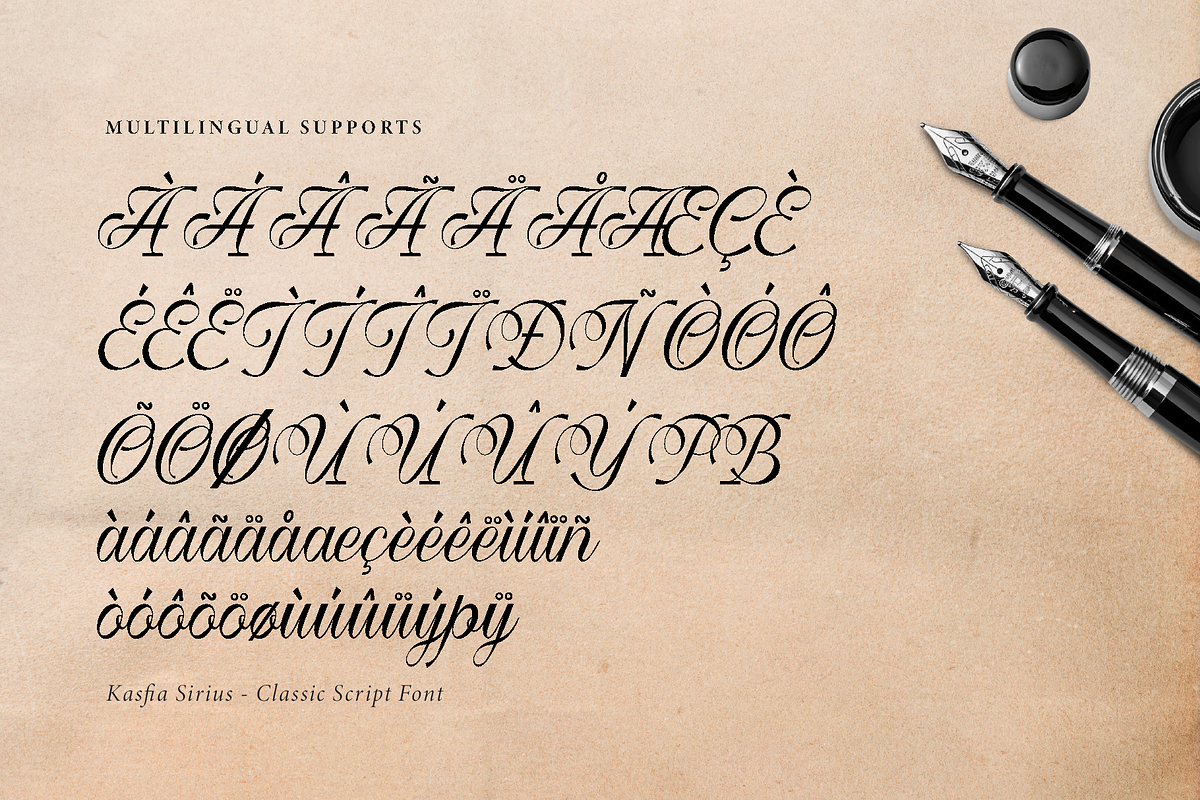 MULTILINGUAL SUPPORTS
ÀÁÂÃÄÅÆÇÈ
ÉÊËÌÍÎÏÐÑÒÓÔ
ÕÖØÙÚÛÝÞB
àáâãäåæçèéêëìíîïñ
òóôõöøùúûüýþÿ
Kasfia Sirius - Classic Script Font